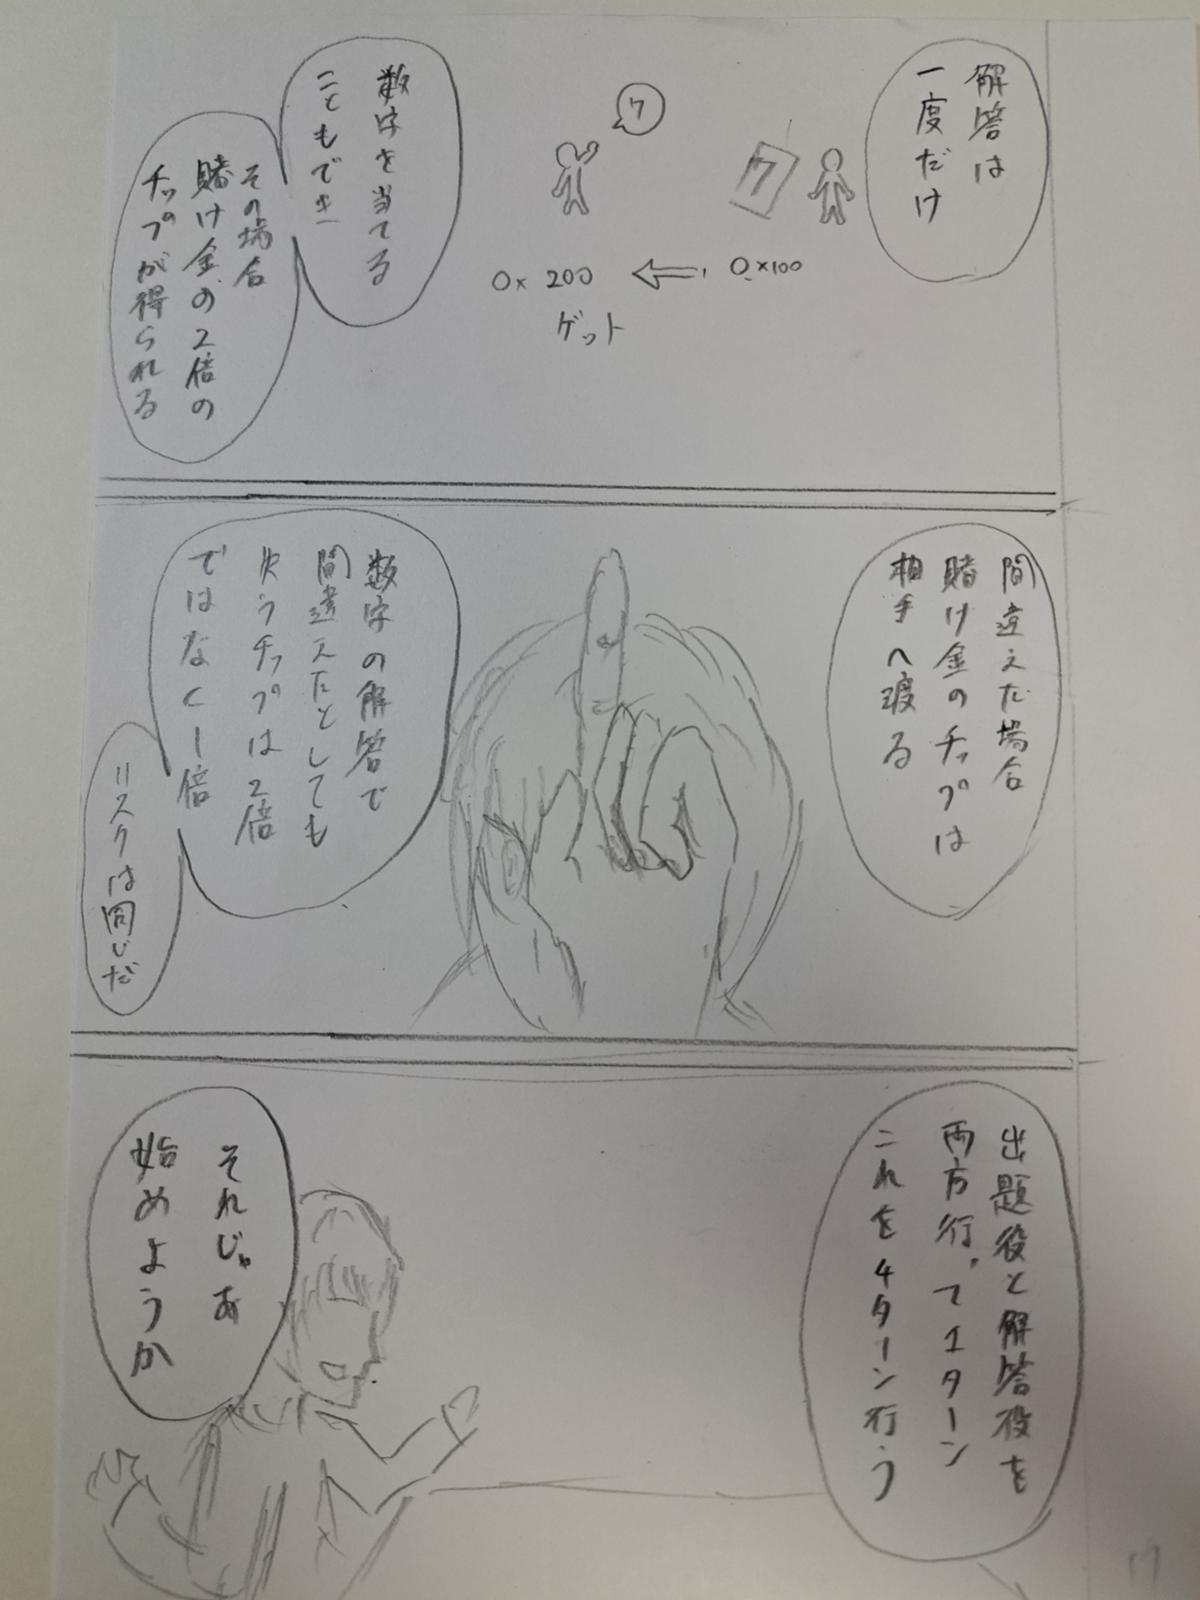 解答は
一度だけ
7
7
0×100
0×200
ゲット
数字を当てる
こともでき
その場合
賭け金の2倍の
チップが得られる
間違えた場合
賭け金のチップは
相手へ渡る
数字の解答で
間違えたとしても
失うチップは2倍
ではなく1倍
リスクは同じだ
出題役と解答役を
両方行って1ターン
これを4ターン行う
それじゃあ
始めようか
17